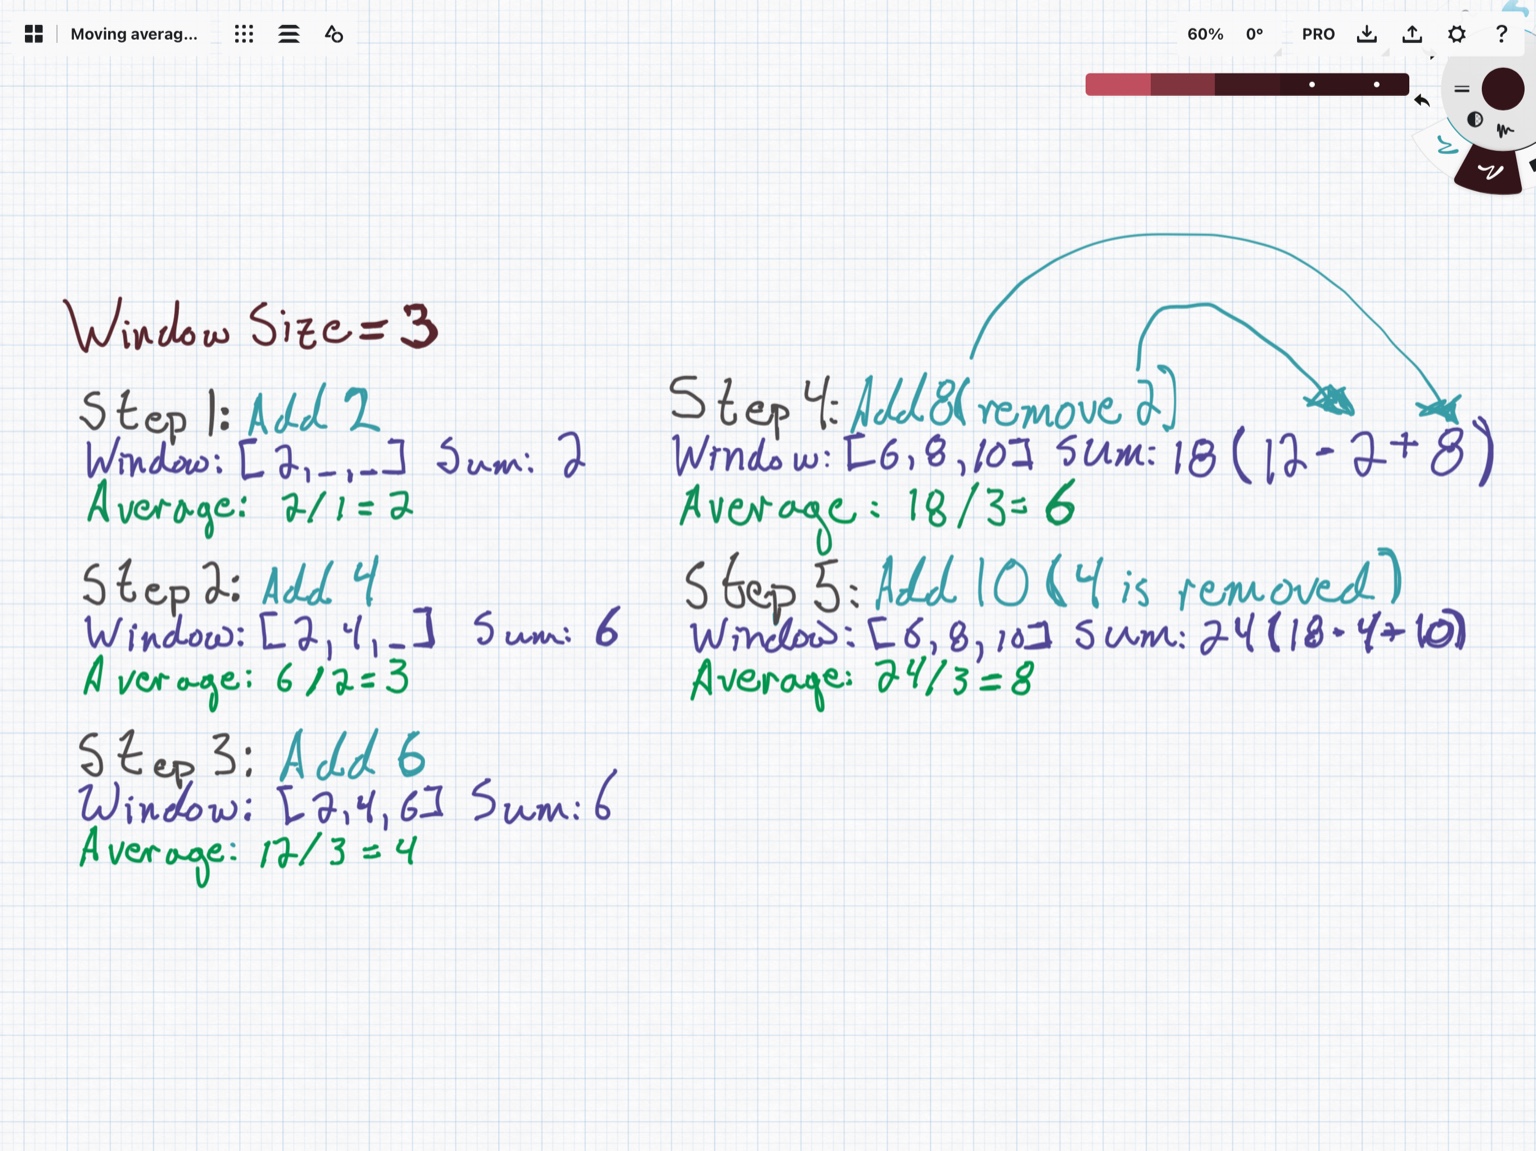 Moving averag...
60% 0° PRO ?
Window Size = 3
Step 1: Add 2
Window: [2,_,_] Sum: 2
Average: 2/1 = 2
Step 2: Add 4
Window: [2,4,_] Sum: 6
Average: 6/2 = 3
Step 3: Add 6
Window: [2,4,6] Sum: 6
Average: 12/3 = 4
Step 4: Add 8(remove 2)
Window: [6,8,10] Sum: 18(12-2+8)
Average: 18/3= 6
Step 5: Add 10 (4 is removed)
Window: [6,8,10] Sum: 24(18-4+10)
Average: 24/3=8